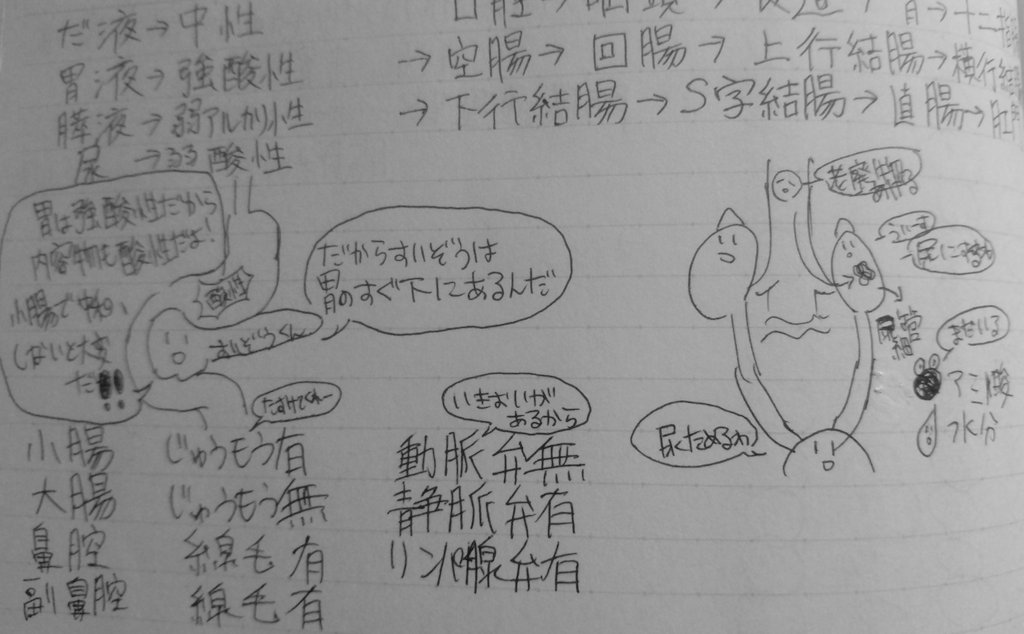 だ液→中性
胃液→強酸性
膵液→弱アルカリ性
尿→弱酸性
→空腸→回腸→上行結腸→横行結
→下行結腸→S字結腸→直腸→肛
胃は強酸性だから
内容物も酸性だよ!
小腸で
しないと大変
だ!!
酸性
すいぞうくん
だからすいぞうは
胃のすぐ下にあるんだ
たすけてくれー
老廃物
尿に
尿管
まだいる
アミノ酸
水分
尿ためるわ
いきおいが
あるから
小腸 じゅうもう有
大腸 じゅうもう無
鼻腔 線毛 有
副鼻腔 線毛 有
動脈 弁無
静脈 弁有
リンパ腺 弁有